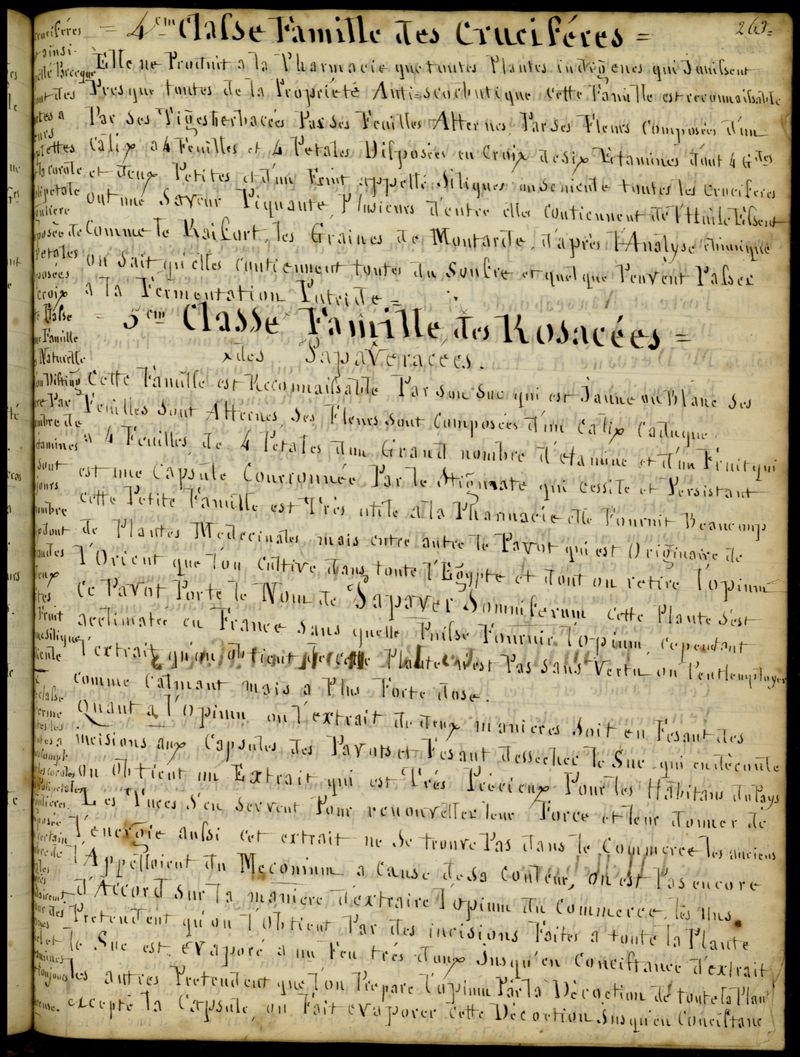 = 4.em Classe Famille des Cruciféres =
263=
Elle ne Produit a la Pharmacie que toutes Plantes indigenes qui Jouissent
Presque toutes de la Propriété Anti=scorbutique Cette Famille est reconnaissable
Par Ses Tiges herbacées Par Ses Feuilles Alternes Par Ses Fleurs Composées d'un
Calix a 4 Feuilles et 4 Petales Disposées en Croix de six Etamines dont 4 Gdes
et deux Petites et d'un Fruit appellé Siliques ou Senicule toutes les Cruciferes
ont une Saveur Piquante, Plusieurs d'entre elles Contiennent de l'Huile Essent
Comme le Raifort, les Graines de Moutarde, d'après l'Analyse chimique
on Sait qu'elles Contiennent toutes du Soufre et quelque Peuvent Passer
a la Fermentation Putride =
= 5em Classe Famille des Rosacées =
x des Papaveracées.
Cette Famille est Reconnaissable Par Son Suc qui est Jaune ou Blanc Ses
Feuilles Sont Alternes, Ses Fleurs Sont Composées d'un Calix Caduque
a 4 Feuilles, de 4 Petales d'un Grand nombre d'étamine et d'un Fruit qui
est une Capsule Couronnée Par le Stigmate qui Cessile et Persistant
Cette Petite Famille est Très utile a la Pharmacie elle Fournit Beaucoup
de Plantes Medecinales mais entre autre le Pavot qui est Originaire de
l'Orient que l'on Cultive dans toute l'Egypte et dont on retire l'opium
Ce Pavot Porte le Nom de Papaver Somniferum Cette Plante S'est
acclimatée en France Sans quelle Puisse Fournir l'opium, Cependant
l'extrait qu'on obtient de cette Plante n'est Pas Sans Vertu on Peut l'employer
Comme Calmant mais a Plus Forte dose.
Quant a l'Opium on l'extrait de deux manieres Soit en Fesant des
incisions aux Capsules des Pavots et Fesant dessecher le Suc qui en découle
on obtient un Extrait qui est Très Précieux Pour les Habitans du Pays
Les Turcs S'en Servent Pour renouveller leur Force et leur donner de
l'energie aussi cet extrait ne Se trouve Pas dans le Commerce les anciens
l'Appelloient du Meconium a Cause de Sa Couleur, on est Pas encore
d'Accord Sur la maniere d'extraire l'opium du Commerce, les Uns
Pretendent qu'on l'Obtient Par des incisions Faites a toute la Plante
le Suc est évaporé a un Feu très doux Jusqu'en Concistance d'extrait
les autres Pretendent que l'on Prepare l'opium Par la Décoction de toute la Plan
excepté la Capsule, on Fait evaporer cette Décoction Jusqu'en Concistanc